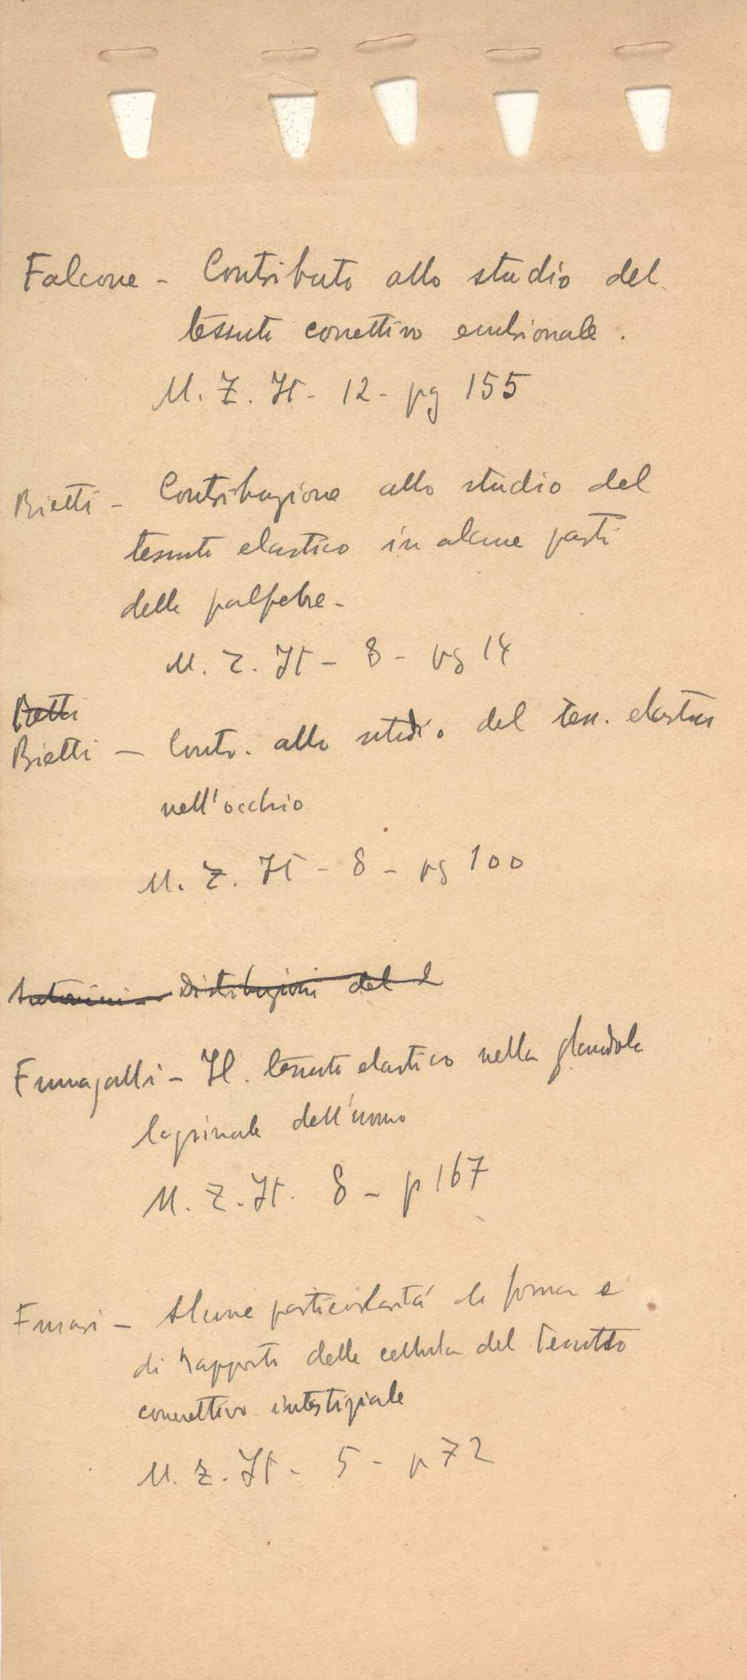 Falcone - Contributo allo studio del
tessuto connettivo embrionale.
M. Z. It - 12 - pg 155
Bietti - Contribuzione allo studio del
tessuto elastico in alcune parti
delle palpebre -
M. Z. It - 8 - pg 14
Bietti
Bietti - Contr. allo studio del tess. elastico
nell'occhio
M. Z. It - 8 - pg 100
Antonini - Distribuzioni del
Fumagalli - Il tessuto elastico nella glandola
lagrimale dell'uomo
M. Z. It. 8 - p 167
Fusari - Alcune particolarità di forma e
di rapporti delle cellule del tessuto
connettivo interstiziale
M. Z. It - 5 - p 72